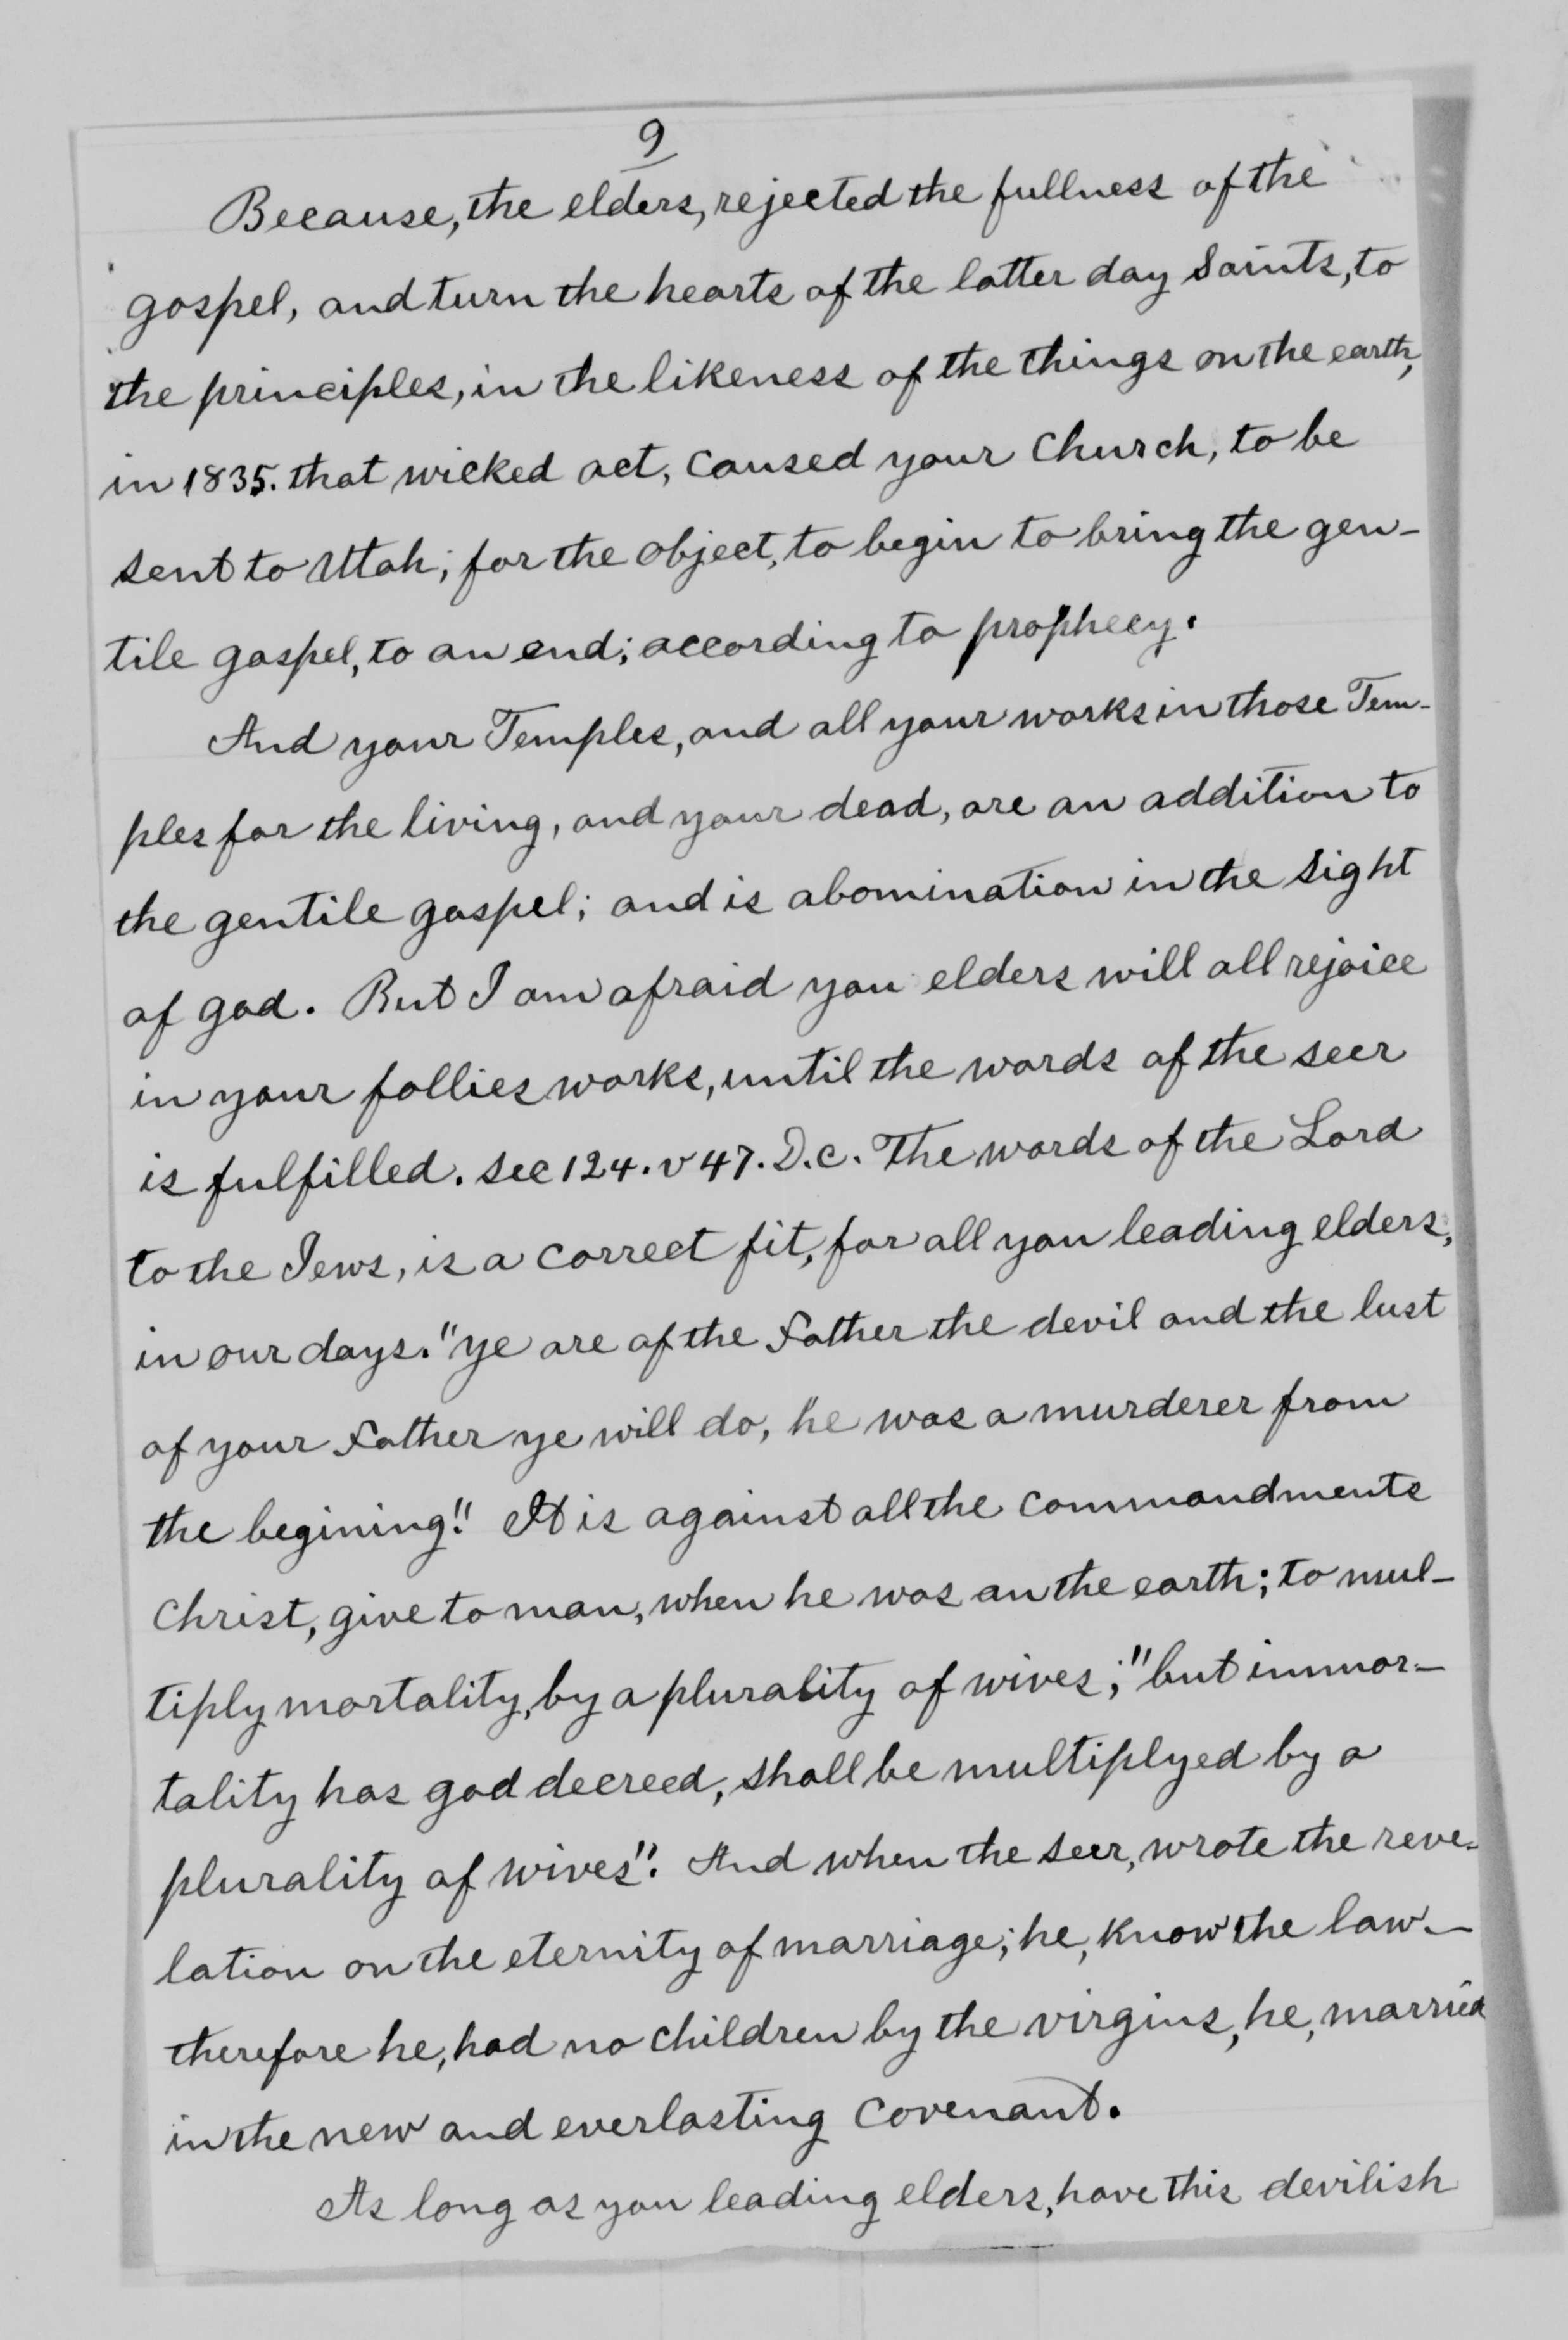 9
Because, the elders, rejected the fullness of the
gospel, and turn the hearts of the latter day Saints, to
the principles, in the likeness of the things on the earth,
in 1835. that wicked act, caused your Church, to be
sent to Utah; for the object, to begin to bring the gen-
tile gospel, to an end; according to prophecy.
And your Temples, and all your works in those Tem-
ples for the living, and your dead, are an addition to
the gentile gospel; and is abomination in the sight
of god. But I am afraid you elders will all rejoice
in your follies works, until the words of the seer
is fulfilled. sec 124. v 47. D.C. The words of the Lord
to the Jews, is a correct fit, for all you leading elders,
in our days. "ye are of the Father the devil and the lust
of your Father ye will do, he was a murderer from
the begining." It is against all the commandments
Christ, give to man, when he was on the earth; to mul-
tiply mortality, by a plurality of wives; "but immor-
tality has god decreed, shall be multiplyed by a
plurality of wives". And when the seer, wrote the reve-
lation on the eternity of marriage; he, know the law-
therefore he, had no children by the virgins, he, married
in the new and everlasting covenant.
As long as you leading elders, have this devilish